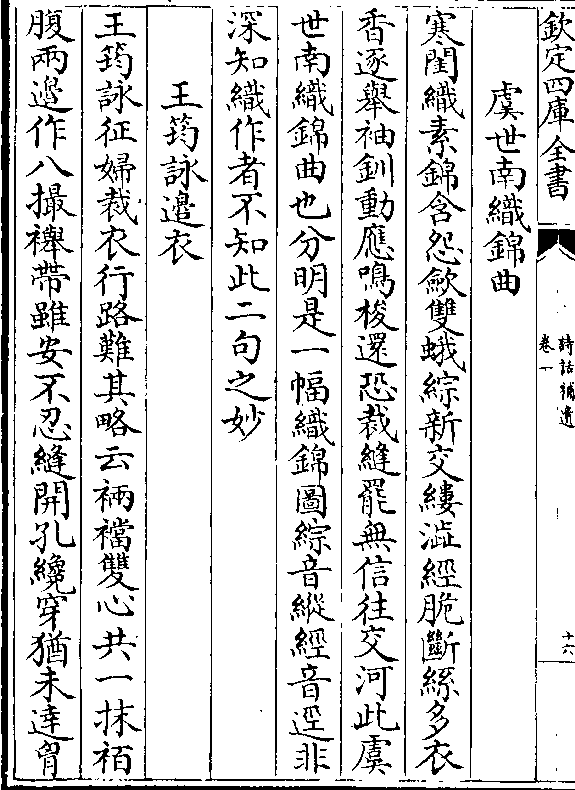 欽定四庫全書
詩話補遺
卷一
十六
虞世南織錦曲
寒閨織素錦含怨歛雙蛾綜新交縷澁經脆斷絲多衣
香逐舉袖釧動應鳴梭還恐裁縫罷無信往交河此虞
世南織錦曲也分明是一幅織錦圖綜音縱經音逕非
深知織作者不知此二句之妙
王筠詠邉衣
王筠詠征婦裁衣行路難其略云裲襠雙心共一抹袹
腹兩邉作八撮襻帶雖安不忍縫開孔纔穿猶未達胷